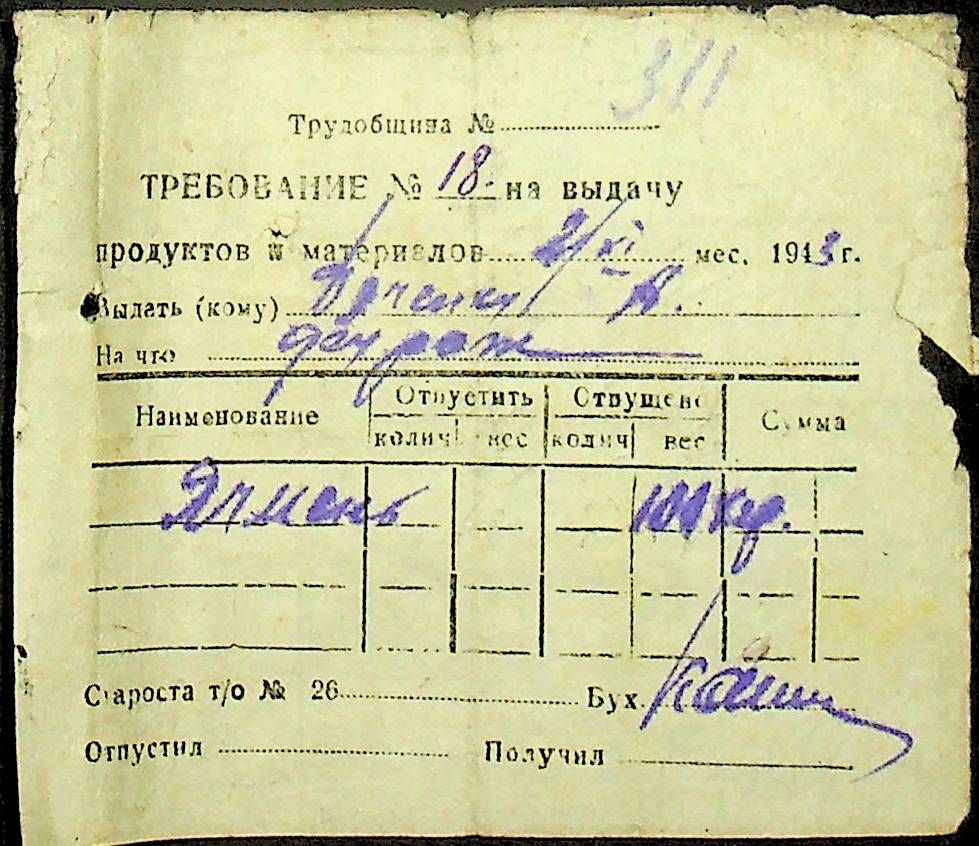 311
Трудобщина №
ТРЕБОВАНИЕ № 18. на выдачу
продуктов и материалов 2/XI мес. 1943 г.
Выдать (кому) А.
На что фураж
Наименование Отпустить Отпущено Сумма
колич вес колич вес
Ячмень кгр.
Староста т/о № 26 Бух.
Отпустил Получил